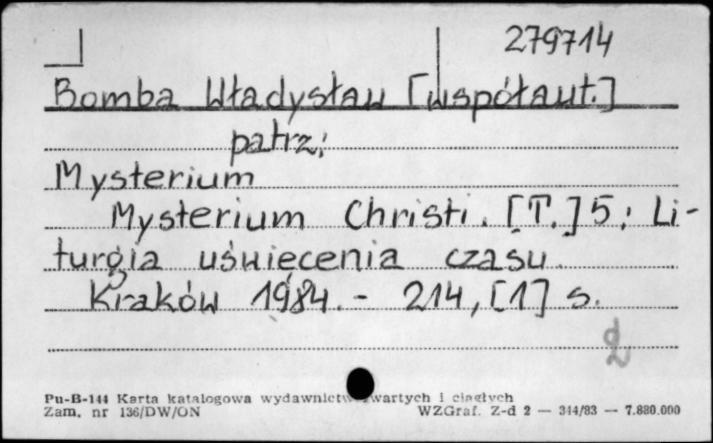 279714
Bomba Władysław [współaut.]
patrz:
Mysterium
Mysterium Christi. [T.] 5: Li-
turgia uświęcenia czasu.
Kraków 1984. - 214, [1] s.
d
Pu-B-144 Karta katalogowa wydawnictw zwartych i ciągłych
Zam. nr 136/DW/ON WZGraf. Z-d 2 — 344/83 — 7.880.000